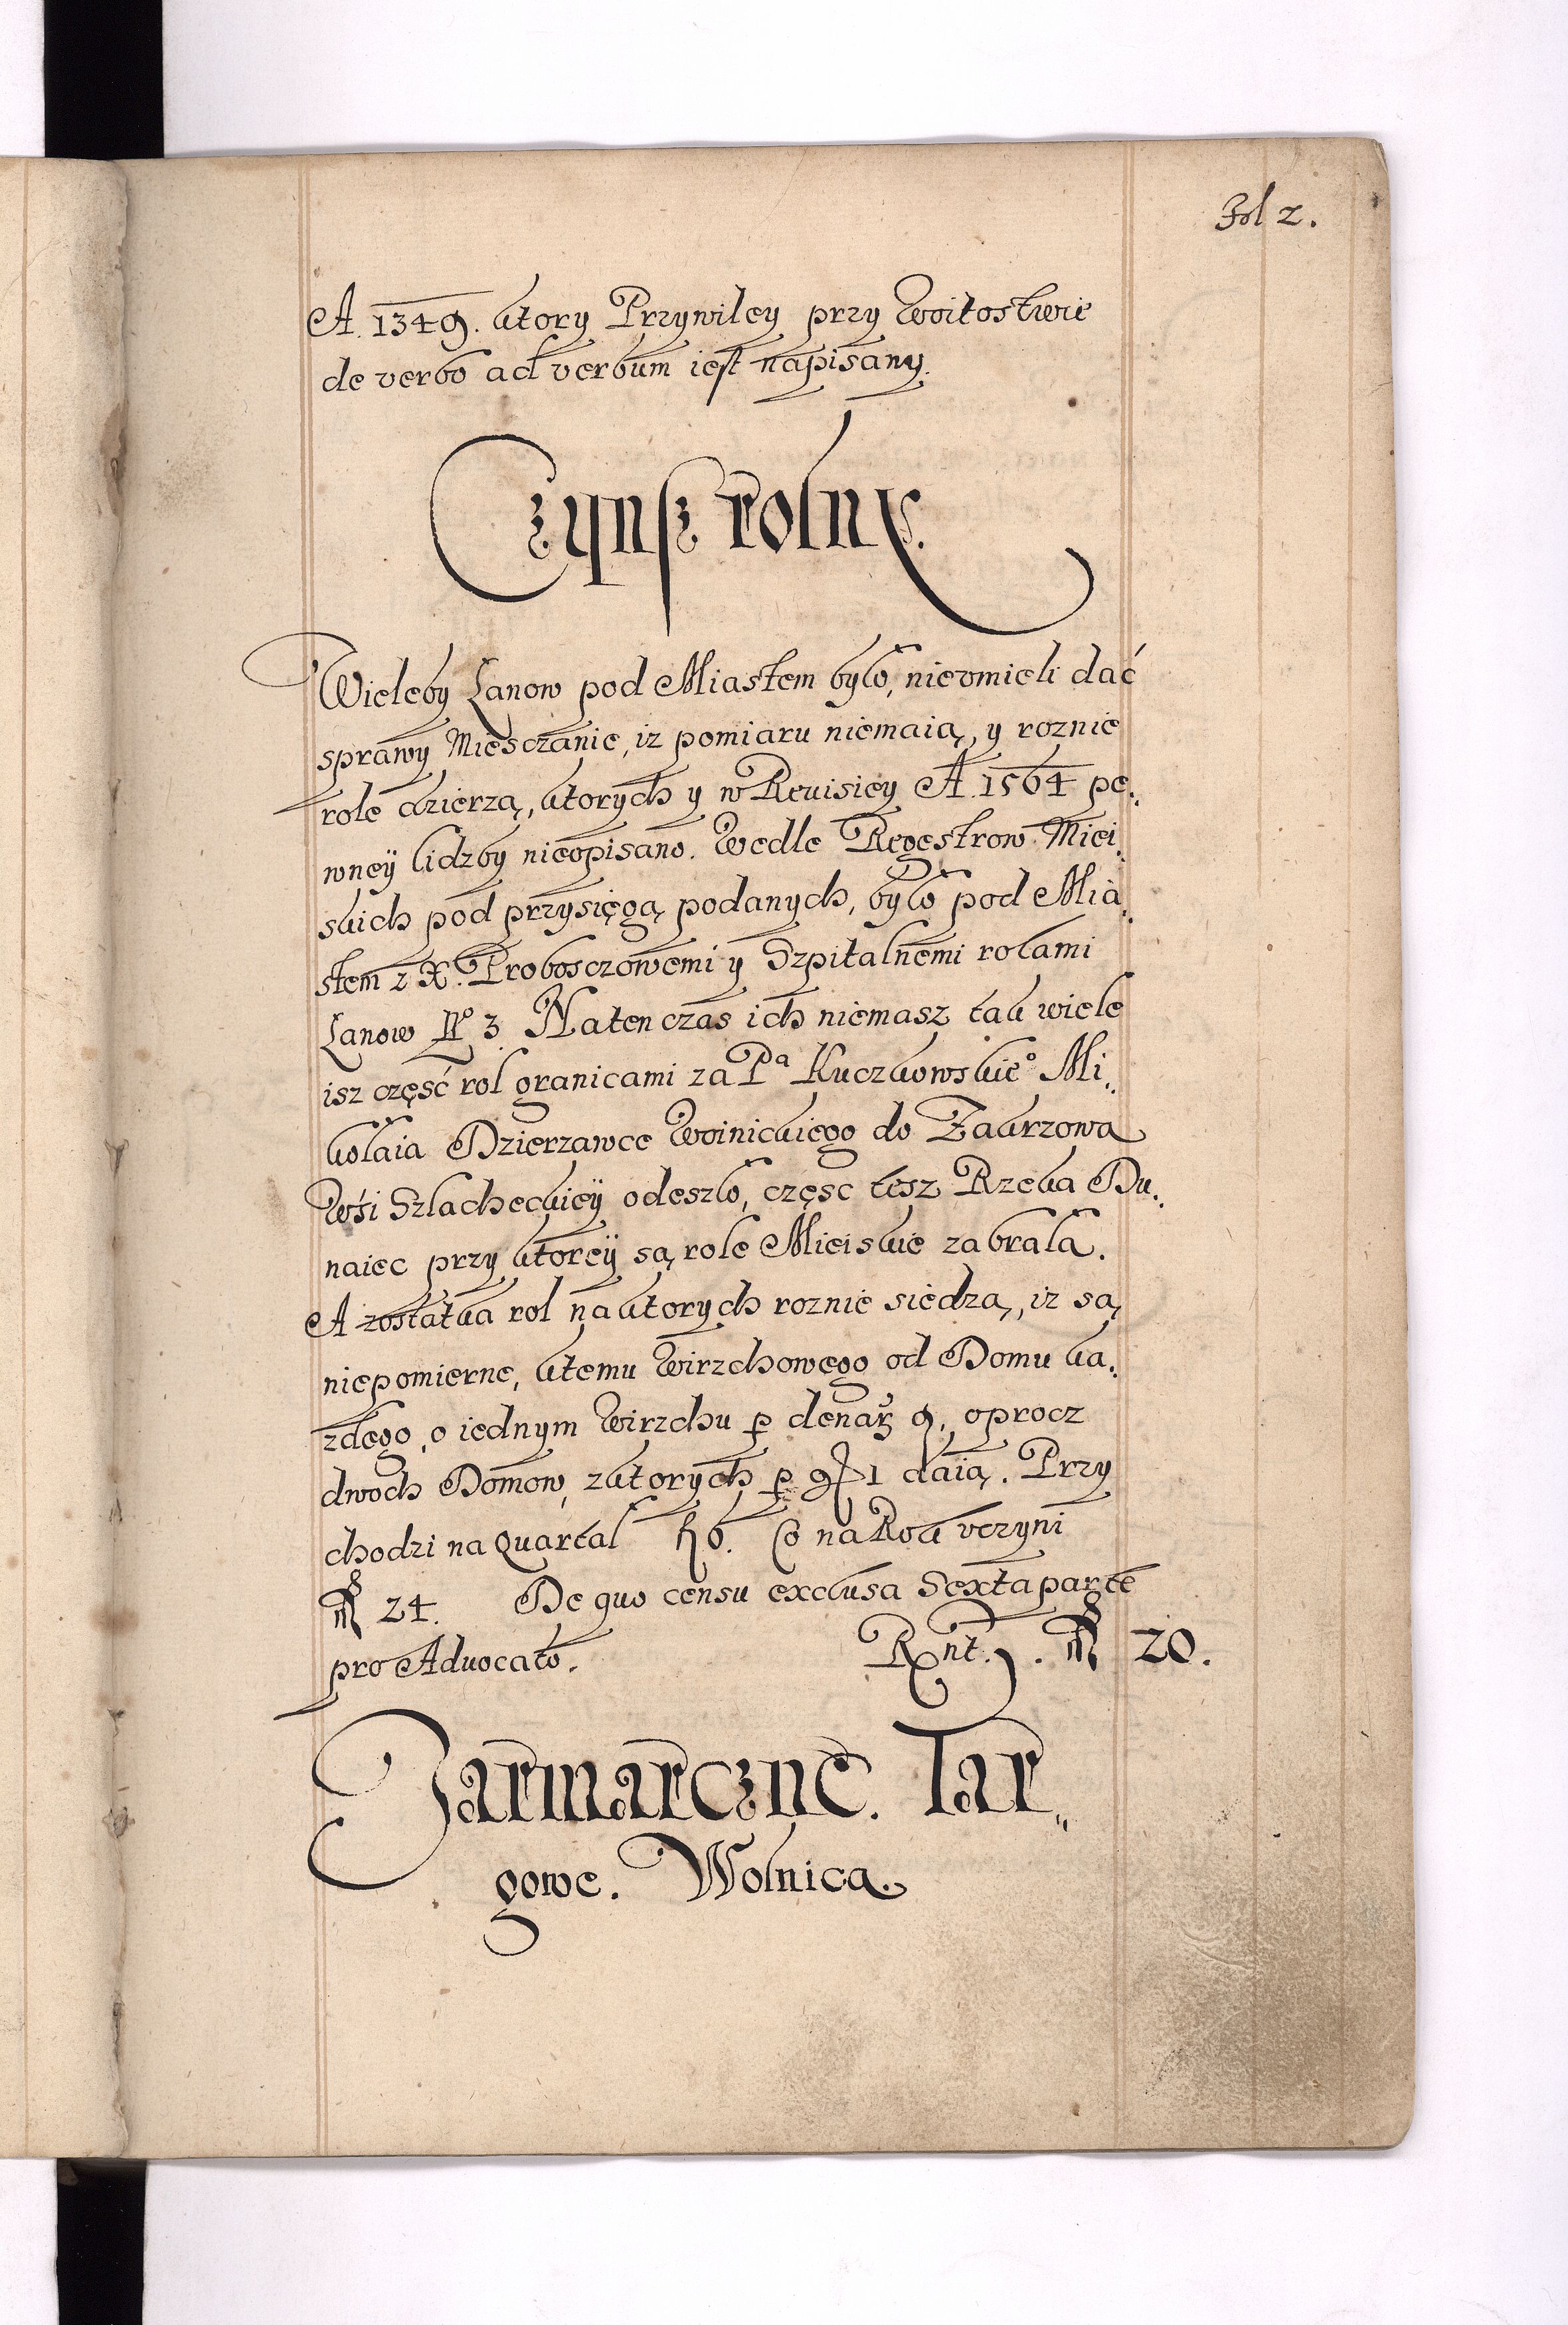 Fol 2.
A. 1349. ktory Przywiley przy Woitostwie
de verbo ad verbum iest napisany.
Czynsz rolny.
Wieleby Łanow pod Miastem było, nievmieli dać
sprawy Miesczanie, iz pomiaru niemaią, y roznie
role dzierzą, ktorych y w Reuisiey A. 1564 pe„
wneÿ lidzby nieopisano. Wedle Regestrow Miei„
skich pod przysięgą podanych, było pod Mia„
stem z X. Proboszczowemi y Szpitalnemi rolami
Łanow No 3. Naten czas ich niemasz tak wiele
isz część rol granicami za Pa Kuczkowskieo Mi„
kołaia Dzierzawce Woinickiego do Zakrzowa
Wśi Szlacheckieÿ odeszło, częsc tesz Rzeka Du„
naiec przy ktoreÿ są role Mieiskie zabrała.
A zostatka rol na ktorych roznie siedzą, iz są
niepomierne, ktemu Wirzchowego od Domu ka„
zdego, o iednym Wirzchu p denar 9, oprocz
dwoch Domow, z ktorych p g 1 daią. Przy
chodzi na Quartal f 6. Co na Rok vczyni
24. De quo censu exclusa Sexta parte
pro Aduocato. Rnt. 20.
Jarmarczne. Tar„
gowe. Wolnica.